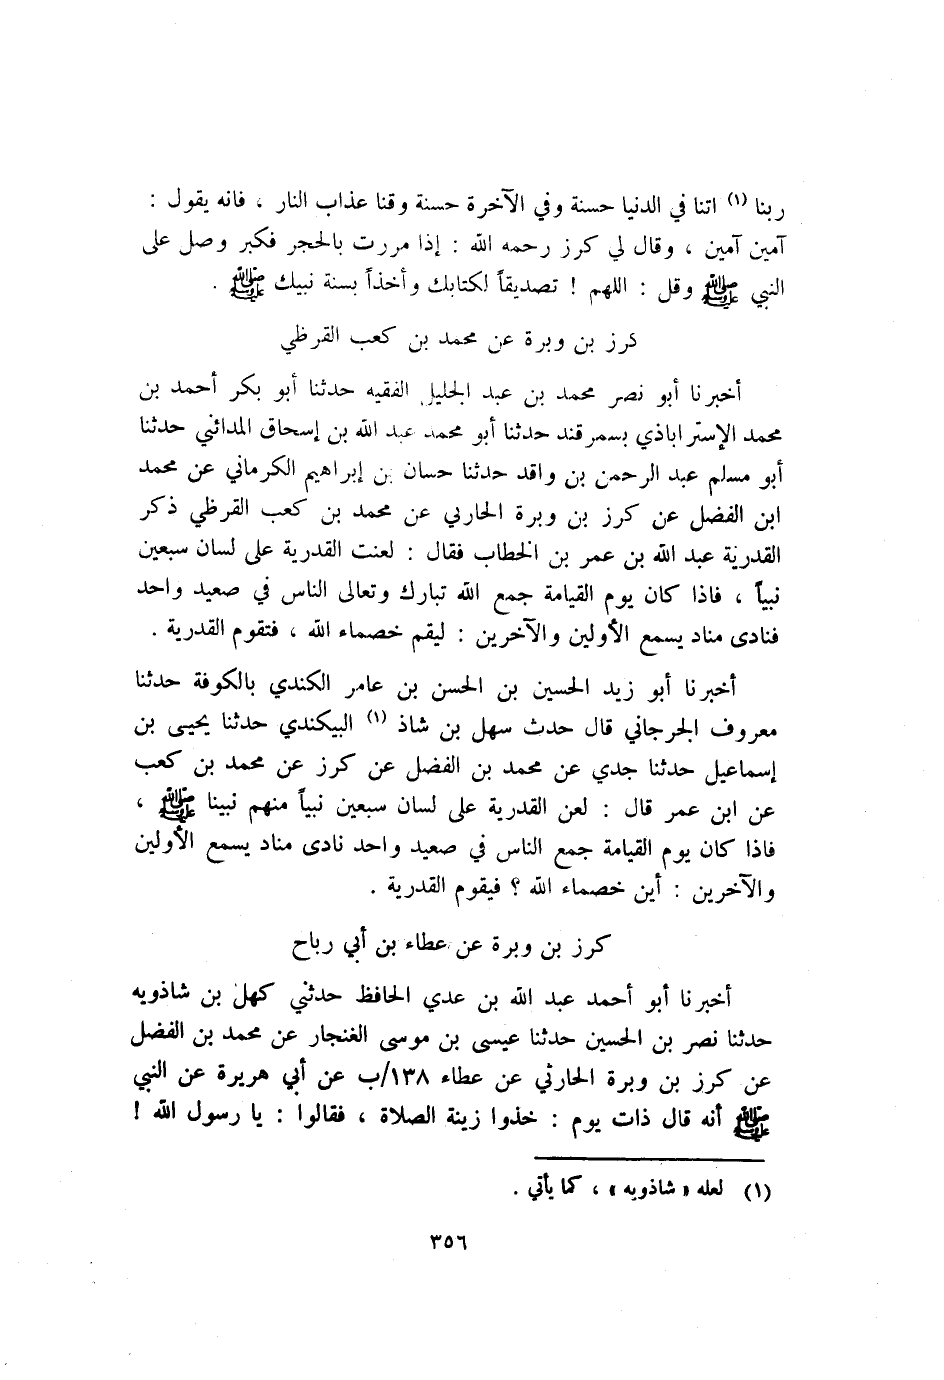 ربنا (١) اتنا في الدنيا حسنة وفي الآخرة حسنة وقنا عذاب النار ، فانه يقول :
آمين آمين ، وقال لي كرز رحمه الله : إذا مررت بالحجر فكبر وصل على
النبي ﷺ وقل : اللهم ! تصديقاً لكتابك وأخذاً بسنة نبيك ﷺ .
كرز بن وبرة عن محمد بن كعب القرظي
أخبرنا أبو نصر محمد بن عبد الجليل الفقيه حدثنا أبو بكر أحمد بن
محمد الإستراباذي بسمرقند حدثنا أبو محمد عبد الله بن إسحاق المدائني حدثنا
أبو مسلم عبد الرحمن بن واقد حدثنا حسان بن إبراهيم الكرماني عن محمد
ابن الفضل عن كرز بن وبرة الحاربي عن محمد بن كعب القرظي ذكر
القدرية عبد الله بن عمر بن الخطاب فقال : لعنت القدرية على لسان سبعين
نبياً ، فاذا كان يوم القيامة جمع الله تبارك وتعالى الناس في صعيد واحد
فنادى مناد يسمع الأولين والآخرين : ليقم خصماء الله ، فتقوم القدرية .
أخبرنا أبو زيد الحسين بن الحسن بن عامر الكندي بالكوفة حدثنا
معروف الجرجاني قال حدث سهل بن شاذ (١) البيكندي حدثنا يحيى بن
إسماعيل حدثنا جدي عن محمد بن الفضل عن كرز عن محمد بن كعب
عن ابن عمر قال : لعن القدرية على لسان سبعين نبياً منهم نبينا ﷺ ،
فاذا كان يوم القيامة جمع الناس في صعيد واحد نادى مناد يسمع الأولين
والآخرين : أين خصماء الله ؟ فيقوم القدرية .
كرز بن وبرة عن عطاء بن أبي رباح
أخبرنا أبو أحمد عبد الله بن عدي الحافظ حدثني كهل بن شاذويه
حدثنا نصر بن الحسين حدثنا عيسى بن موسى الغنجار عن محمد بن الفضل
عن كرز بن وبرة الحارثي عن عطاء ١٣٨/ب عن أبي هريرة عن النبي
ﷺ أنه قال ذات يوم : خذوا زينة الصلاة ، فقالوا : يا رسول الله !
(١) لعله « شاذويه » ، كما يأتي .
٣٥٦